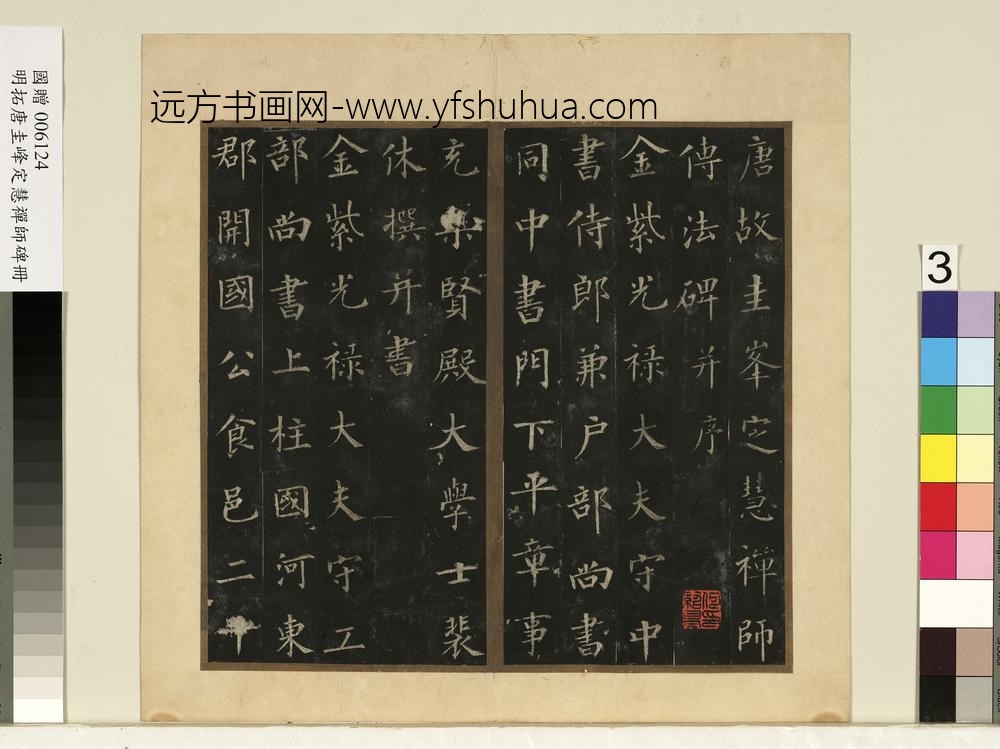 國贈 006124
明拓唐圭峰定慧禪師碑冊
远方书画网-www.yfshuhua.com
3
唐故圭峯定慧禪師
傳法碑并序
金紫光禄大夫守中
書侍郎兼户部尚書
同中書門下平章事
充集賢殿大學士裴
休撰并書
金紫光禄大夫守工
部尚書上柱國河東
郡開國公食邑二千